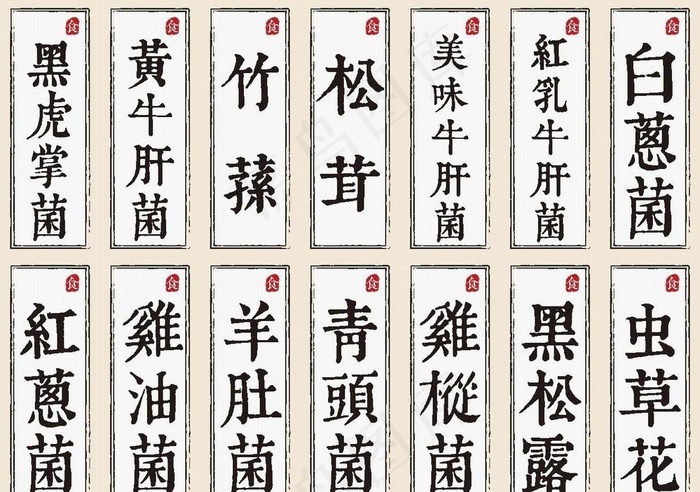 黑虎掌菌
黃牛肝菌
竹蓀
松茸
美味牛肝菌
紅乳牛肝菌
白蔥菌
紅蔥菌
雞油菌
羊肚菌
青頭菌
雞樅菌
黑松露
虫草花
食
食
食
食
食
食
食
食
食
食
食
食
食
食